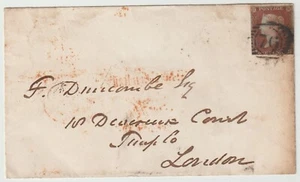 F. Duncombe Esq
18 Devereux Court
Temple
London